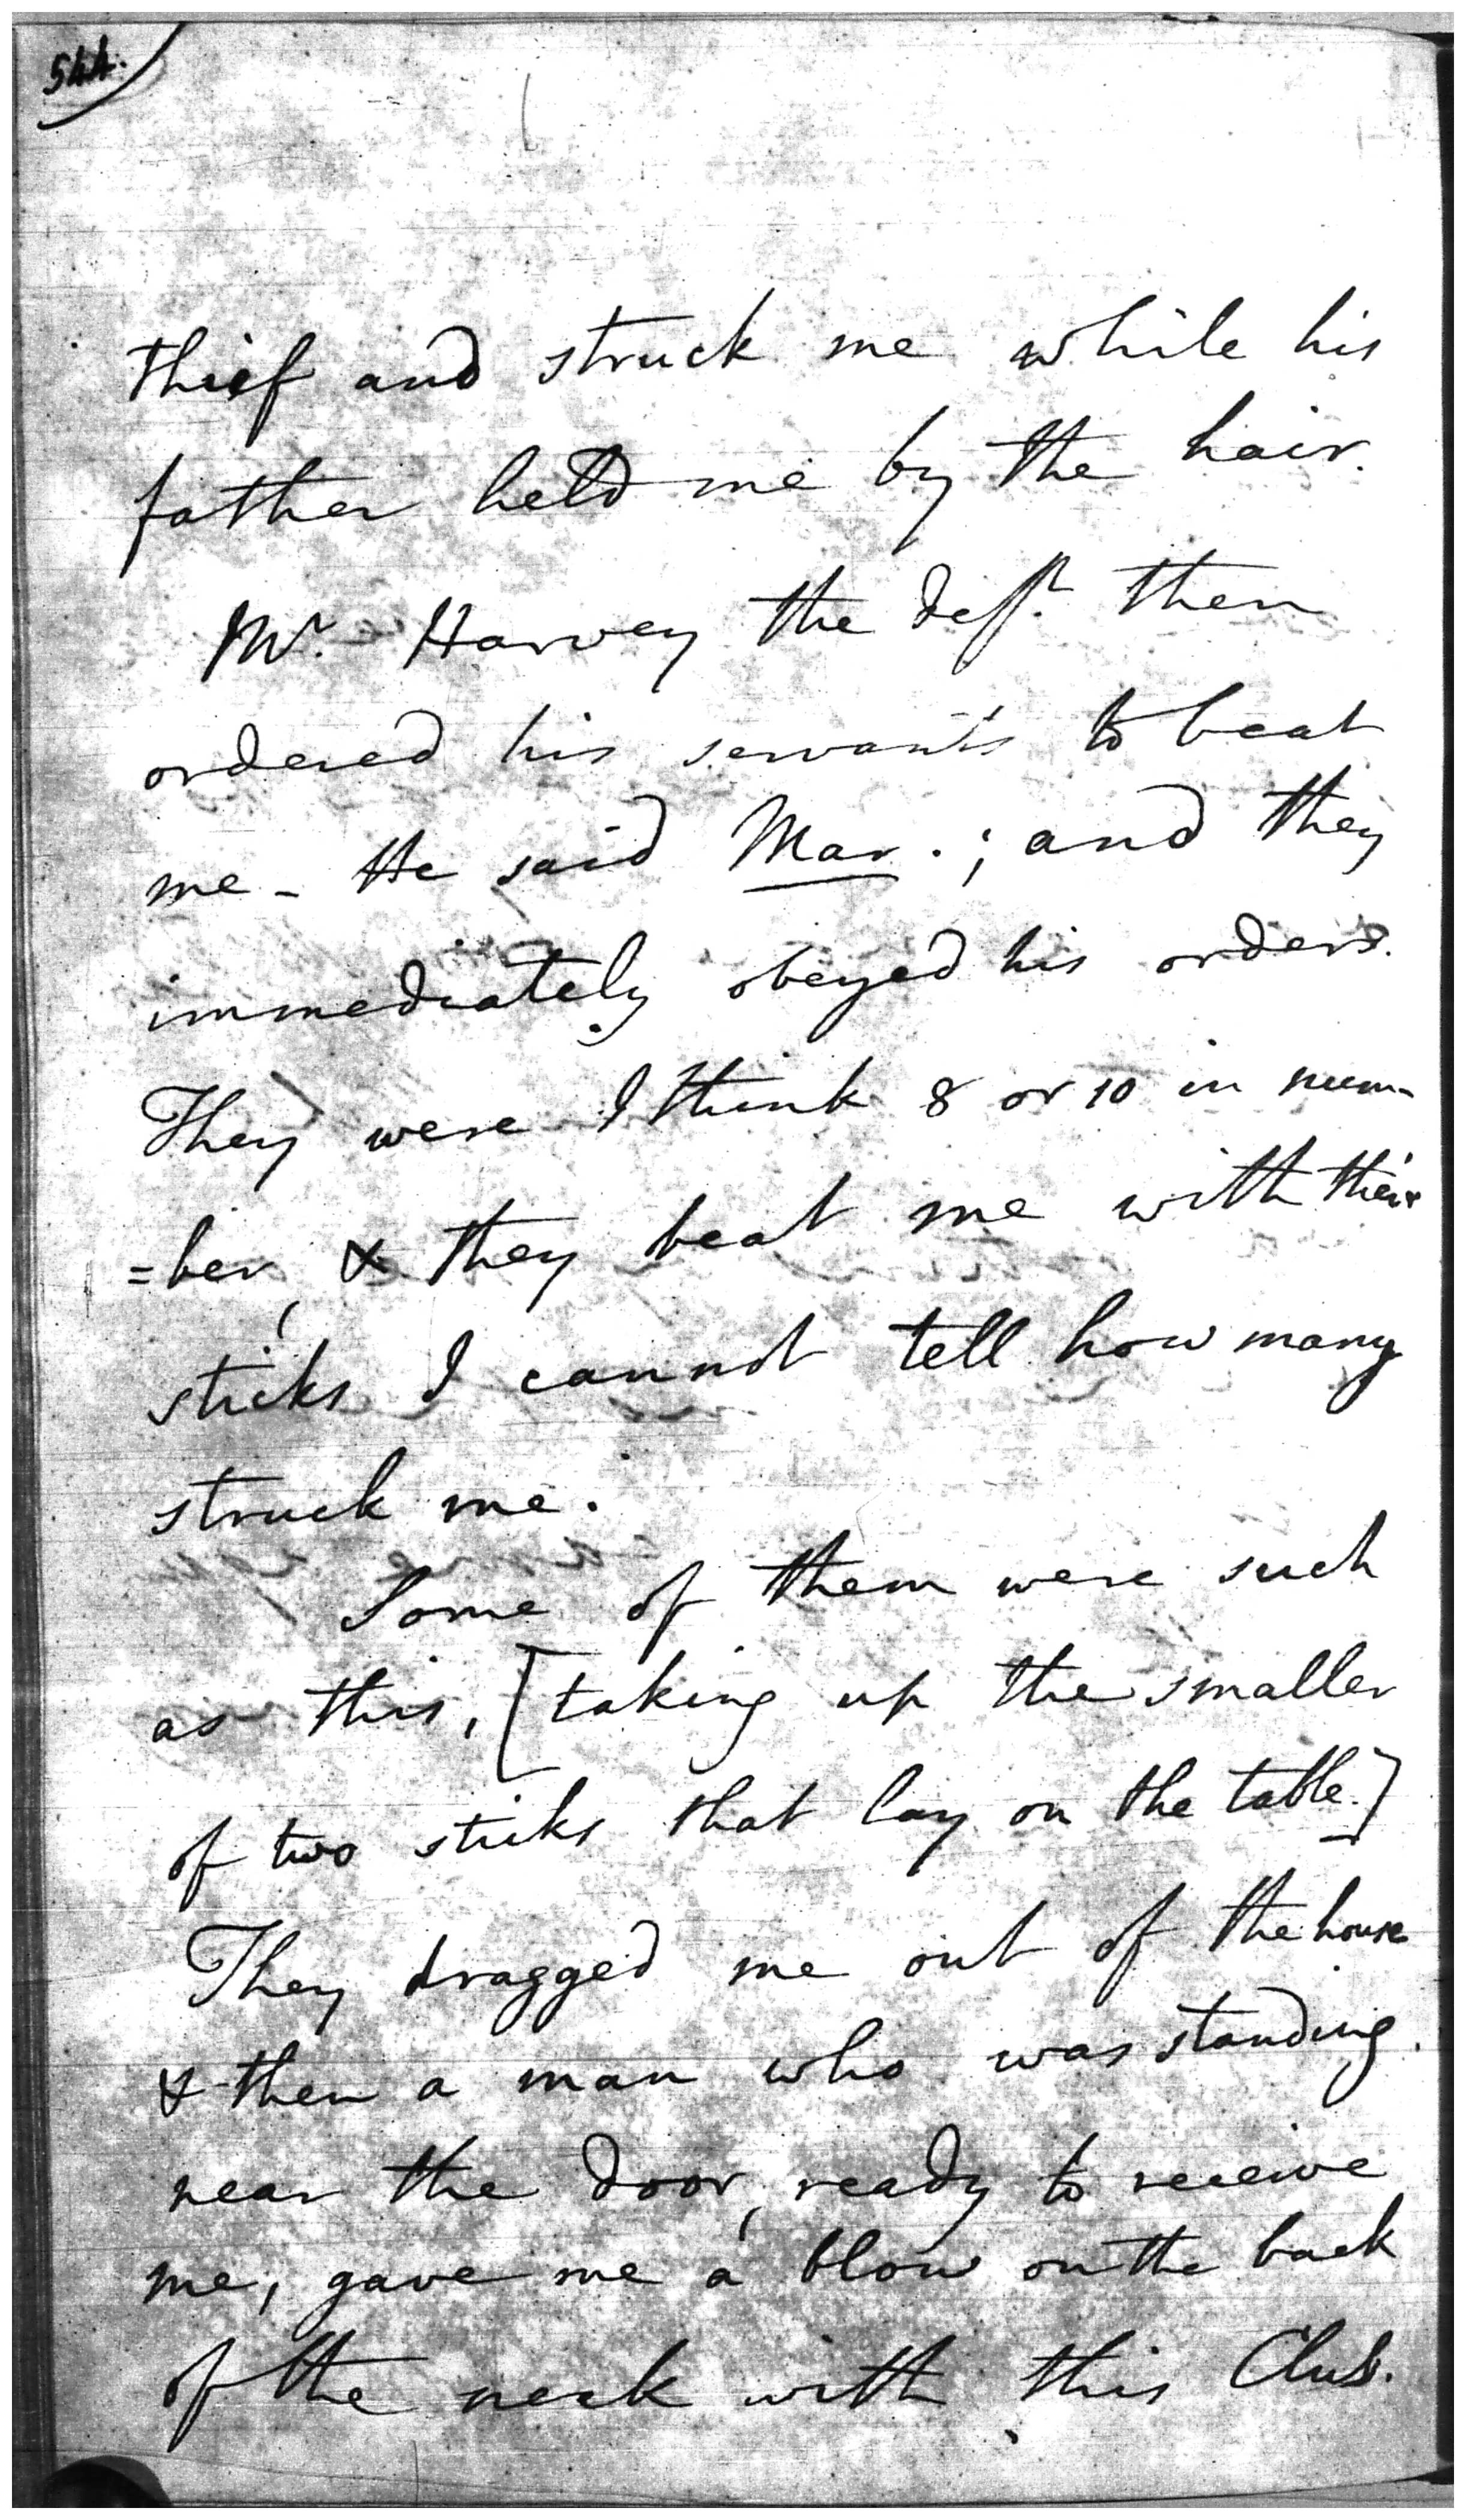 544.
thief and struck me while his
father held me by the hair.
Mr. Harvey the deft. then
ordered his servants to beat
me - He said Mar. ; and they
immediately obeyed his orders.
They were I think 8 or 10 in num-
=ber, & they beat me with their
sticks I cannot tell how many
struck me.
Some of them were such
as this, [taking up the smaller
of two sticks that lay on the table.]
They dragged me out of the house
& then a man who was standing
near the door, ready to receive
me, gave me a blow on the back
of the neck with this Club.